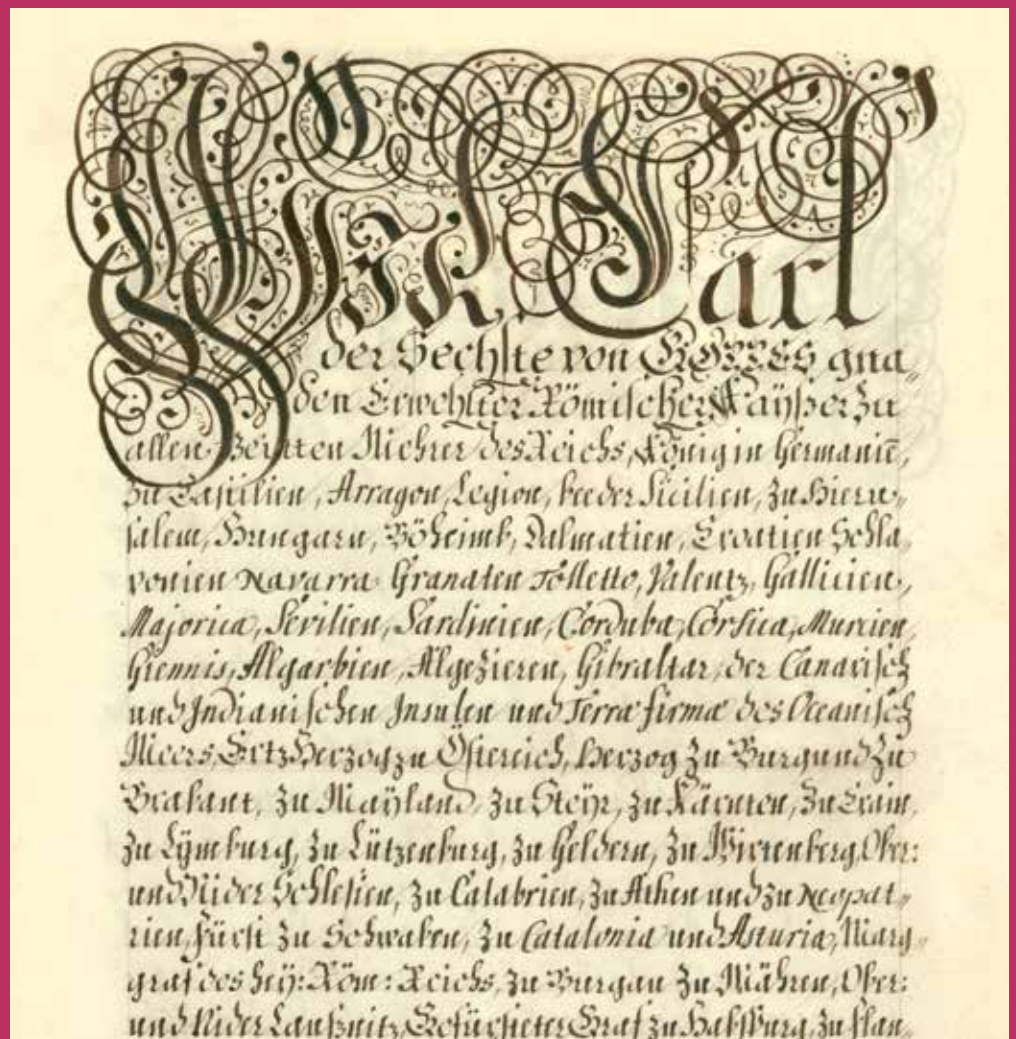 Wir Carl
der Sechste von GOTTES gna„
den Erwehlter Römischer Kaÿßer zu
allen Zeitten Mehrer des Reichs, König in Germanie͞,
zu Castilien, Arragon, Legion, beeder Sicilien, zu Hieru„
salem, Hungarn, Böheimb, Dalmatien, Croatien Schla„
vonien Navarra Granaten Tolletto, Valentz, Gallicien,
Majorica, Sevilien, Sardinien, Corduba, Corsica, Murcien,
Giennis, Algarbien, Algezieren, Gibraltar, der Canarisch
und Indianischen Insulen und Terra firma des Oceanisch
Meers, Ertz Herzog zu Österreich, Herzog zu Burgund zu
Brabant, zu Maÿland, zu Steÿr, zu Kärnten, zu Crain,
zu Lÿmburg, zu Lützenburg, zu Geldern, zu Wirtenberg, Ober:
und Nider Schlesien, zu Calabrien, zu Athen und zu Neopat„
rien, Fürst zu Schwaben, zu Catalonia und Asturia, Marg„
graf des heÿ: Röm: Reichs, zu Burgau zu Mähren, Ober:
und Nider Laußnitz, Gefürsteter Graf zu Habsburg, zu Flan„